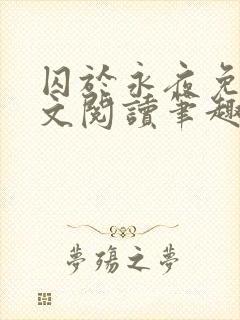 囚於永夜免
文閱讀筆趣
夢殤之夢